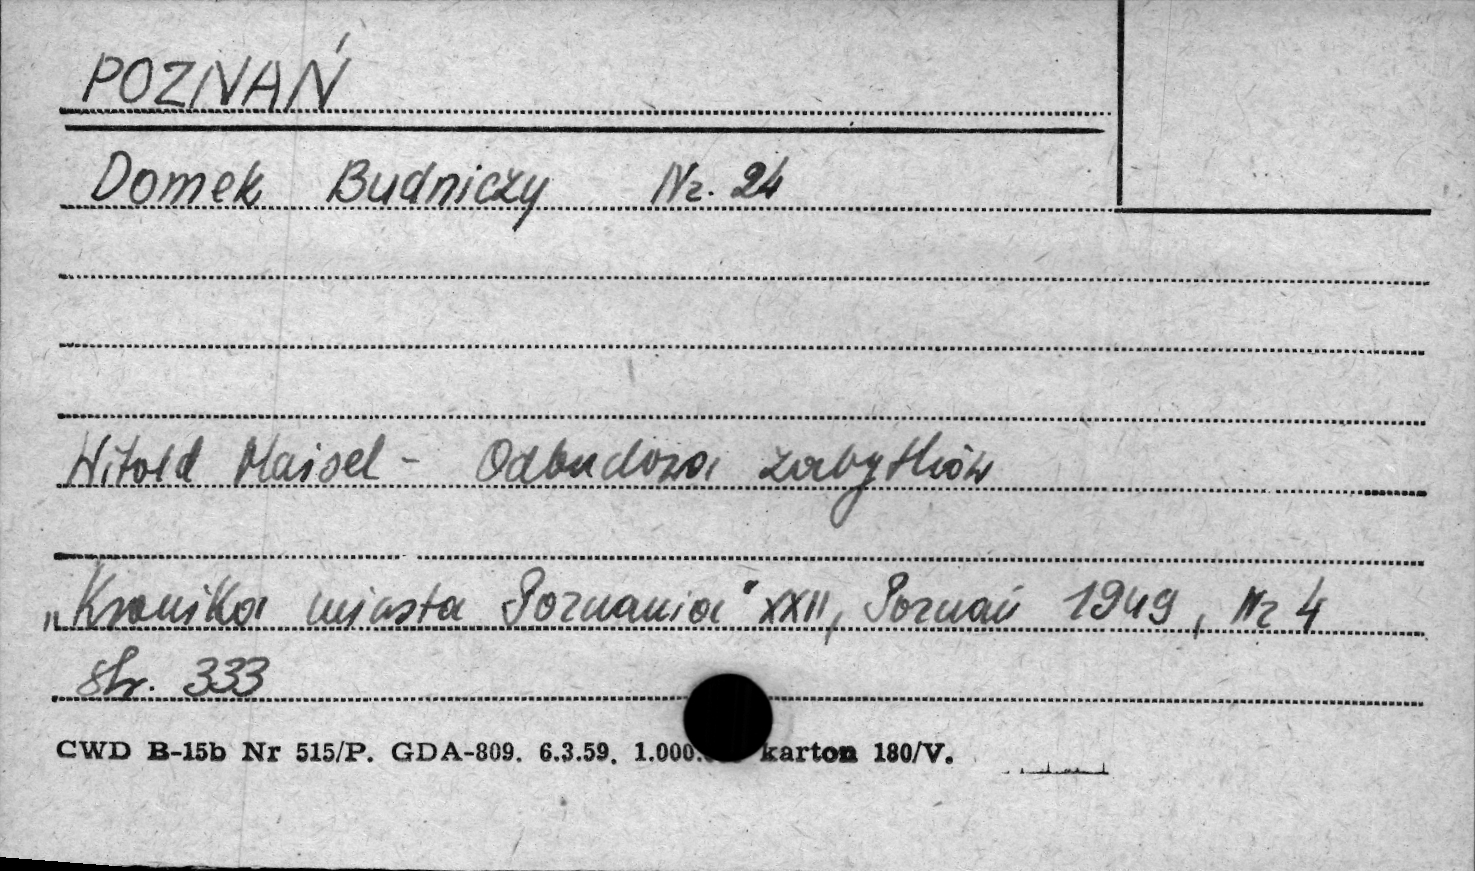 POZNAŃ
Domek Budniczy Nr. 24
Witold Maisel - Odbudowa zabytków
„Kronika miasta Poznania" XXII, Poznań 1949, Nr 4
str. 333
CWD B-15b Nr 515/P. GDA-809. 6.3.59. 1.000. karton 180/V.